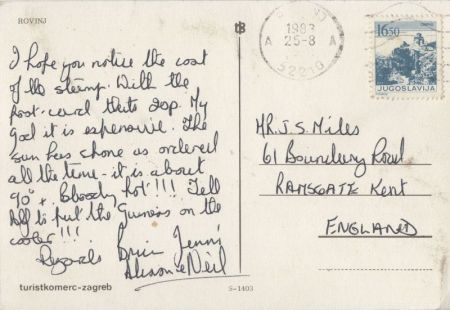 ROVINJ
I hope you notice the cost
of the stamp. With the
post-card thats 20p. My
God it is expensive. The
sun has shone as ordered
all the time - it is about
90° +. Bloody hot!!! Tell
to put the Guiness on the
cooler!!!
Regards Brian Jenni
Alison & Neil
turistkomerc-zagreb
S-1403
1983
A 25-8 A
52210
16.50
JUGOSLAVIJA
MR. J. S. Miles
61 Boundary Road
RAMSGATE Kent
ENGLAND